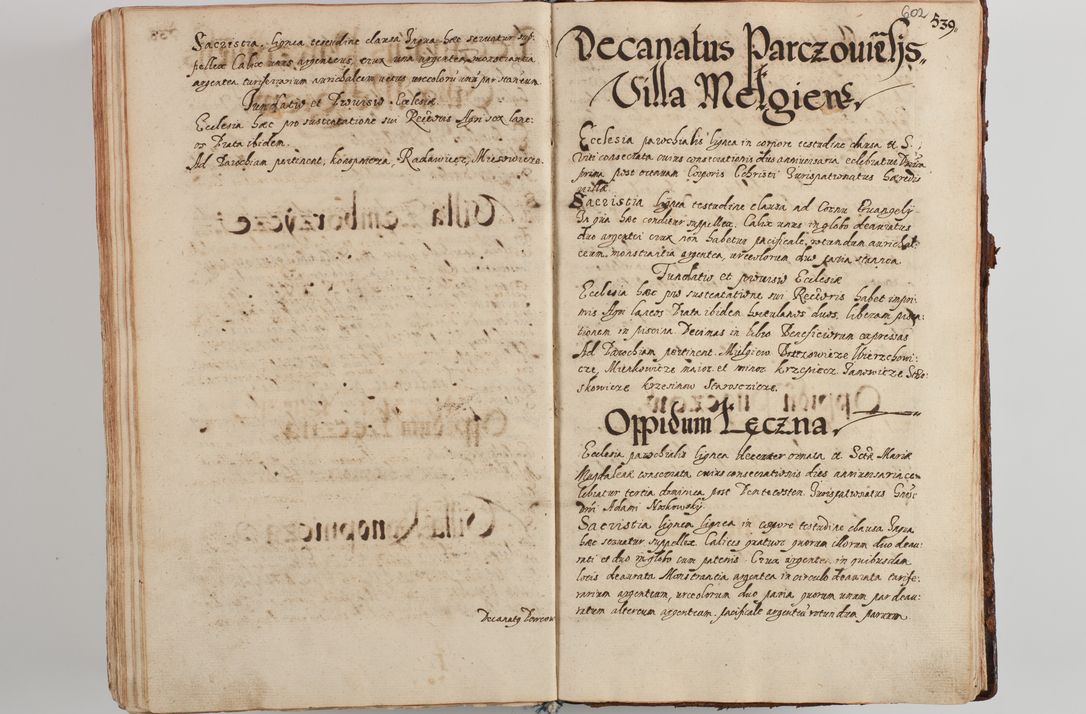 Sacristia, lignea testudine clausa In qua hæc seruatur sup:
pellex Calix unus argenteus, crux una argentea, monstrantia
argentea turiferarium aurichalceum uetus urceolorũ unũ par staneum.
Fundatio et Prouisio Ecclesiæ.
Ecclesia hæc pro sustentatione sui Rectoris Agri sex lane:
os Prata ibidem.
Ad Parochiam pertinent, konopnicza, Radawiecz, Miesowicze.
Decanatq Parczow
602
539
Decanatus Parczouiẽsis
Villa Melgiew
Ecclesia parochialis lignea in corpore testudine clausa tt. S.
Viti consecrata cuius consecrationis dies anniuersaria celebratur Domin:
prima post octauam Corporis Christi Jurispatronatus hæredis
uillæ
Sacristia lignea testudine clausa ad Cornu Euangelij
In qua hæc conditur suppellex. Calix unus in globo deauratus
duo argentei crux non habetur pacificale, rotundum aurichal:
ceum, monstrantia argentea, urceolorum duo paria stanea.
Fundatio et prouisio Ecclesiæ
Ecclesia hæc pro sustentatione sui Rectoris habet inpri:
mis Agri laneos Prata ibidem hortulanos duos, liberam pisca:
tionem in piscina. Decimas in libro Beneficiorum expressas
Ad Parochiam pertinent. Milgiew Wierzchowi:
cze, Mienkowicze maior et minor krzesiecz Janowicze
skowicze krzesinow Staroscicze
Oppidum Łęczna
Ecclesia parochialis lignea decenter ornata tt. Sctæ Mariæ
Magdalenæ consecrata cuius consecrationis dies anniuersaria ce:
lebratur tertia dominica post Pentecosten. Jurispatronatus Gnosi
dni Adami Noskowsky.
Sacristia lignea lignea in corpore testudine clausa In qua
hæc seruatur suppellex. Calices quatuor quorum illorum duo deau:
rati et duo in globo cum patenis. Crux argentea in quibusdam
locis deaurata Monstrancia argentea in circulo deaurata turife:
rarium argenteum, urceolorum duo paria quorum unum par deau:
ratum alterum argenteum. pacificale argenteũ rotundum paruum.